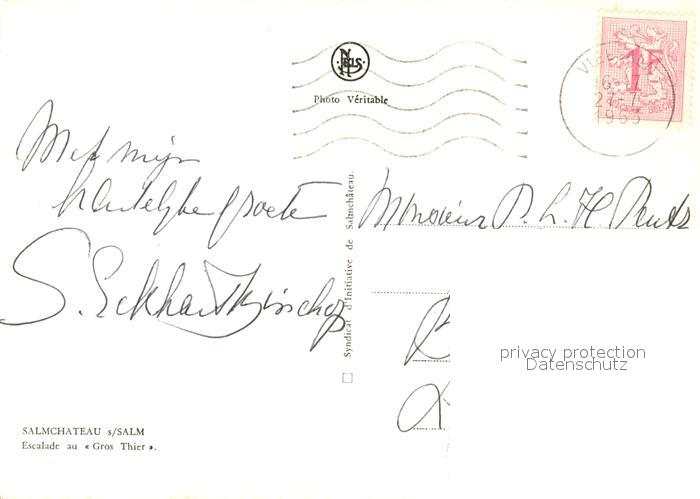 NELS
Photo Véritable
1F
27-7
1963
Met mijn
hartelijke groeten
S. Eckhart
Monsieur P. L. H.
Syndicat d'Initiative de Salmchâteau.
privacy protection
Datenschutz
SALMCHATEAU s/SALM
Escalade au « Gros Thier ».